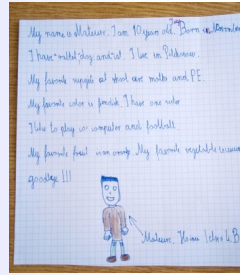 My name is Mateusz. I am 10 year old. Born in November
I have dog and cat. I live in
My favorite at shool are maths and PE.
My favorite color is I have one
I like to play computer and football
My favorite fruit is My favorite vegetable
goodbye !!!
Mateusz. 4.B